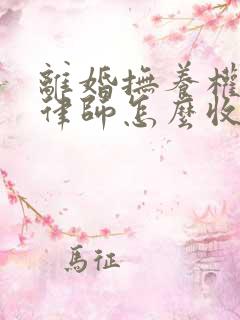 離婚撫養權
律師怎麼收
馬征